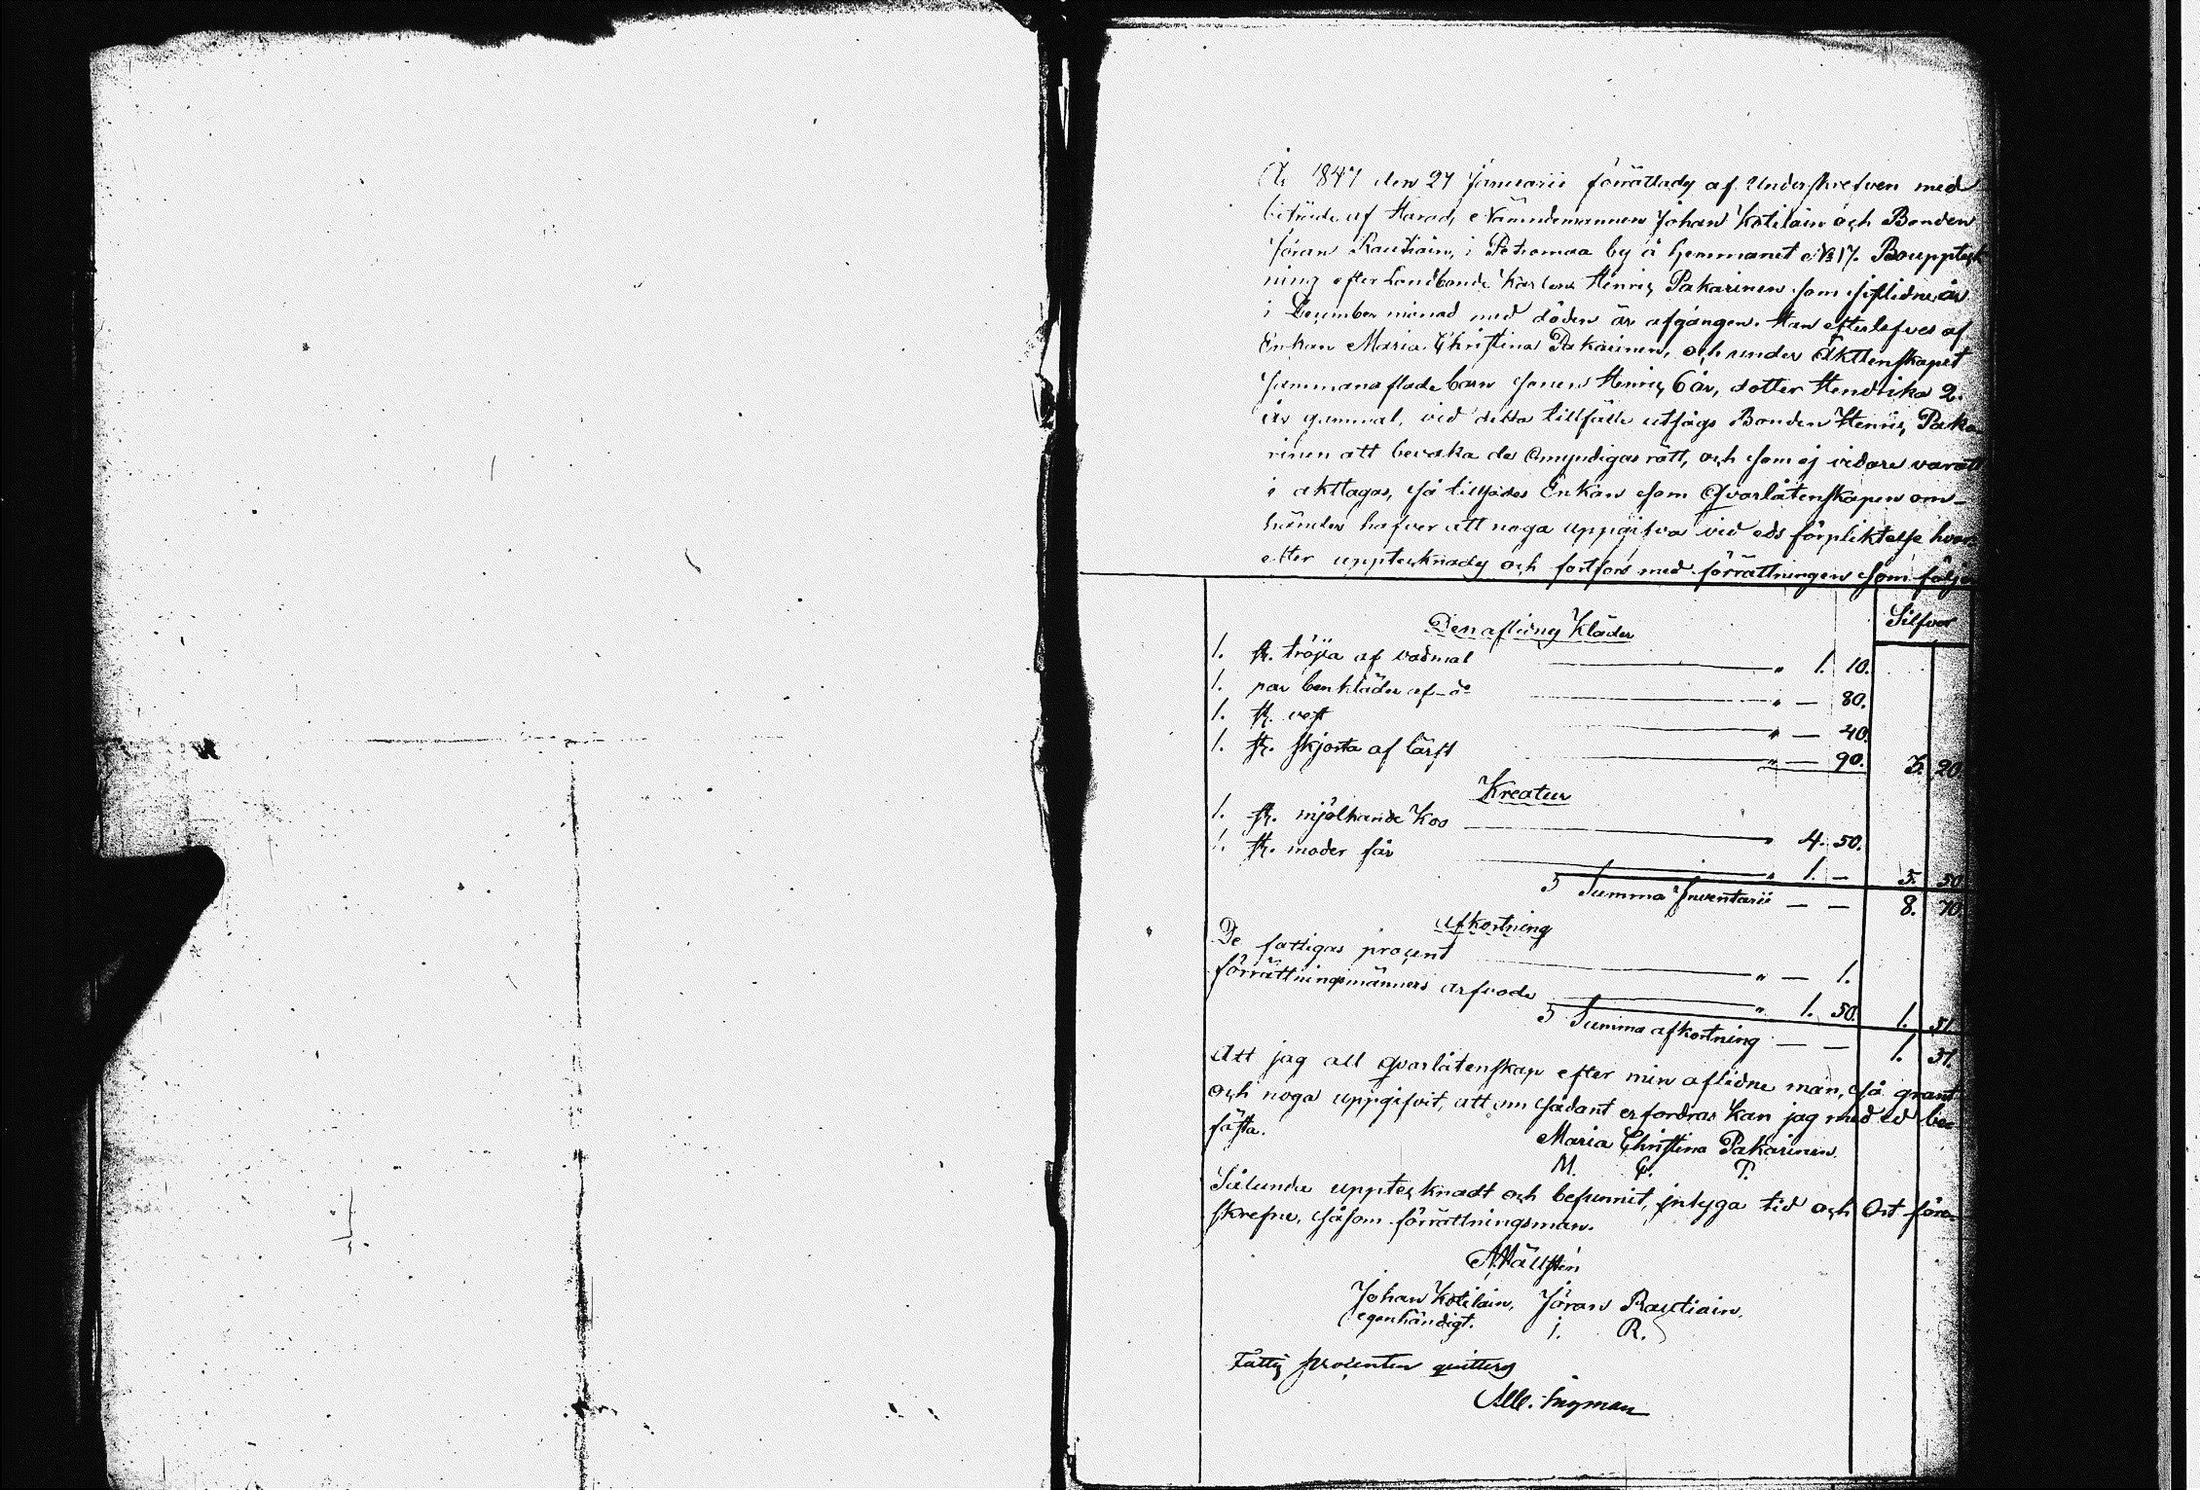 År 1847 den 27 Januarii förrättades af Underskrefven med
biträde af Härads Nämndemannen Johan Kotilain och Bonden
Jöran Rautiain, i Petromaa by å hemmanet N:o 17. Bouppteck
ning efter Landbonde Karlens Henric Pakarinen som sistlidne år
i December månad med döden är afgången. Han efterlefves af
Enkan Maria Christina Pakarinen, och under Äktenskapet
sammanaflade barn sonen Henric 6 år, dotter Hendrika 2.
år gammal, vid detta tillfälle utsågs Bonden Henric Paka
rinen att bevaka de Omyndigas rätt, och som ej vidare varit
i akttagas, så tillsades Enkan som Qvarlåtenskapen om-
händer hafver att noga uppgifva vid eds förpliktelse hvar
efter upptecknades och fortfors med förrättningen som följer
Silfver
Den aflidnes Kläder
1. st. tröja af vadmal " 1. 10.
1. par benkläder af d:o " — 80.
1. st. vest " — 40.
1. st. skjorta af lärft " — 90. 3. 20.
Kreatur
1. st. mjölkande Koo " 4. 50.
1. st. moder får " 1. — 5. 50.
Summa Inventarii — — 8. 70.
Afkortning
De fattigas procent " — 1.
förrättningsmänners arfvode " 1. 50. 1. 51.
Summa afkortning — — 1. 51.
Att jag all Qvarlåtenskap efter min aflidne man, så grant
och noga uppgifvit, att om sådant erfordras kan jag med ed be-
fästa.
Maria Christina Pakarinen.
M. C. P.
Sålunda upptecknadt och befunnit, intyga tid och Ort före-
skrefne, såsom förrättningsman.
Johan Kotilain, Jöran Rautiain,
egenhändigt. J. R.
Fattig procenten quitteras
Ingman